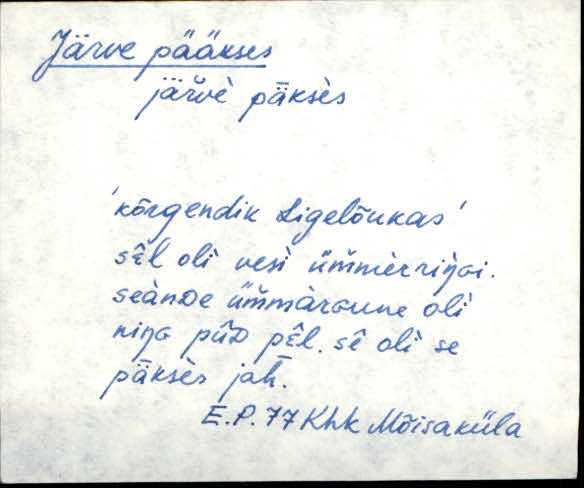 Järve pääkses
järvè päksès
'kõrgendik Ligelõukas'
sêl oli vesì üm̆mèrriŋŋi.
seànDe üm̆màraune olì
niŋo pūD pêl. sê olì se
pāksès jah.
E.P. 77 Khk Mõisaküla